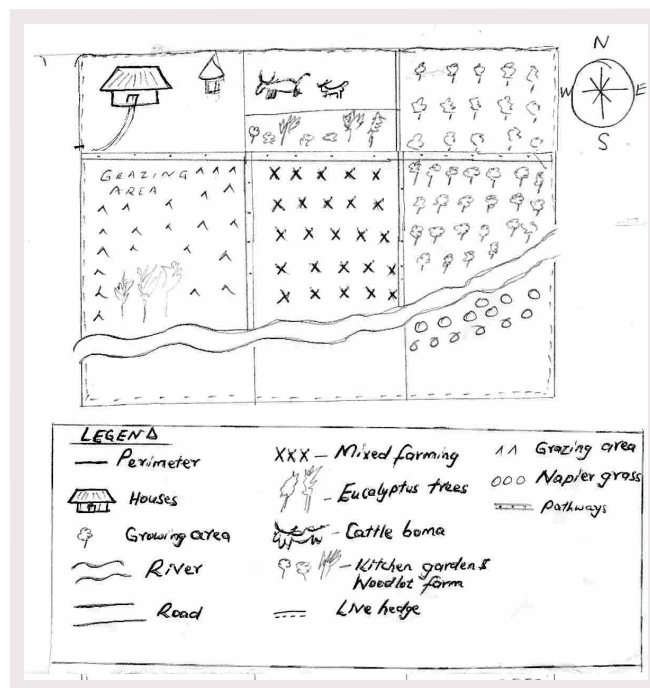 N
W E
S
GRAZING
AREA
LEGEND
Perimeter
Houses
Growing area
River
Road
XXX - Mixed farming
- Eucalyptus trees
- Cattle boma
- Kitchen garden &
Woodlot farm
Live hedge
Grazing area
Napier grass
Pathways